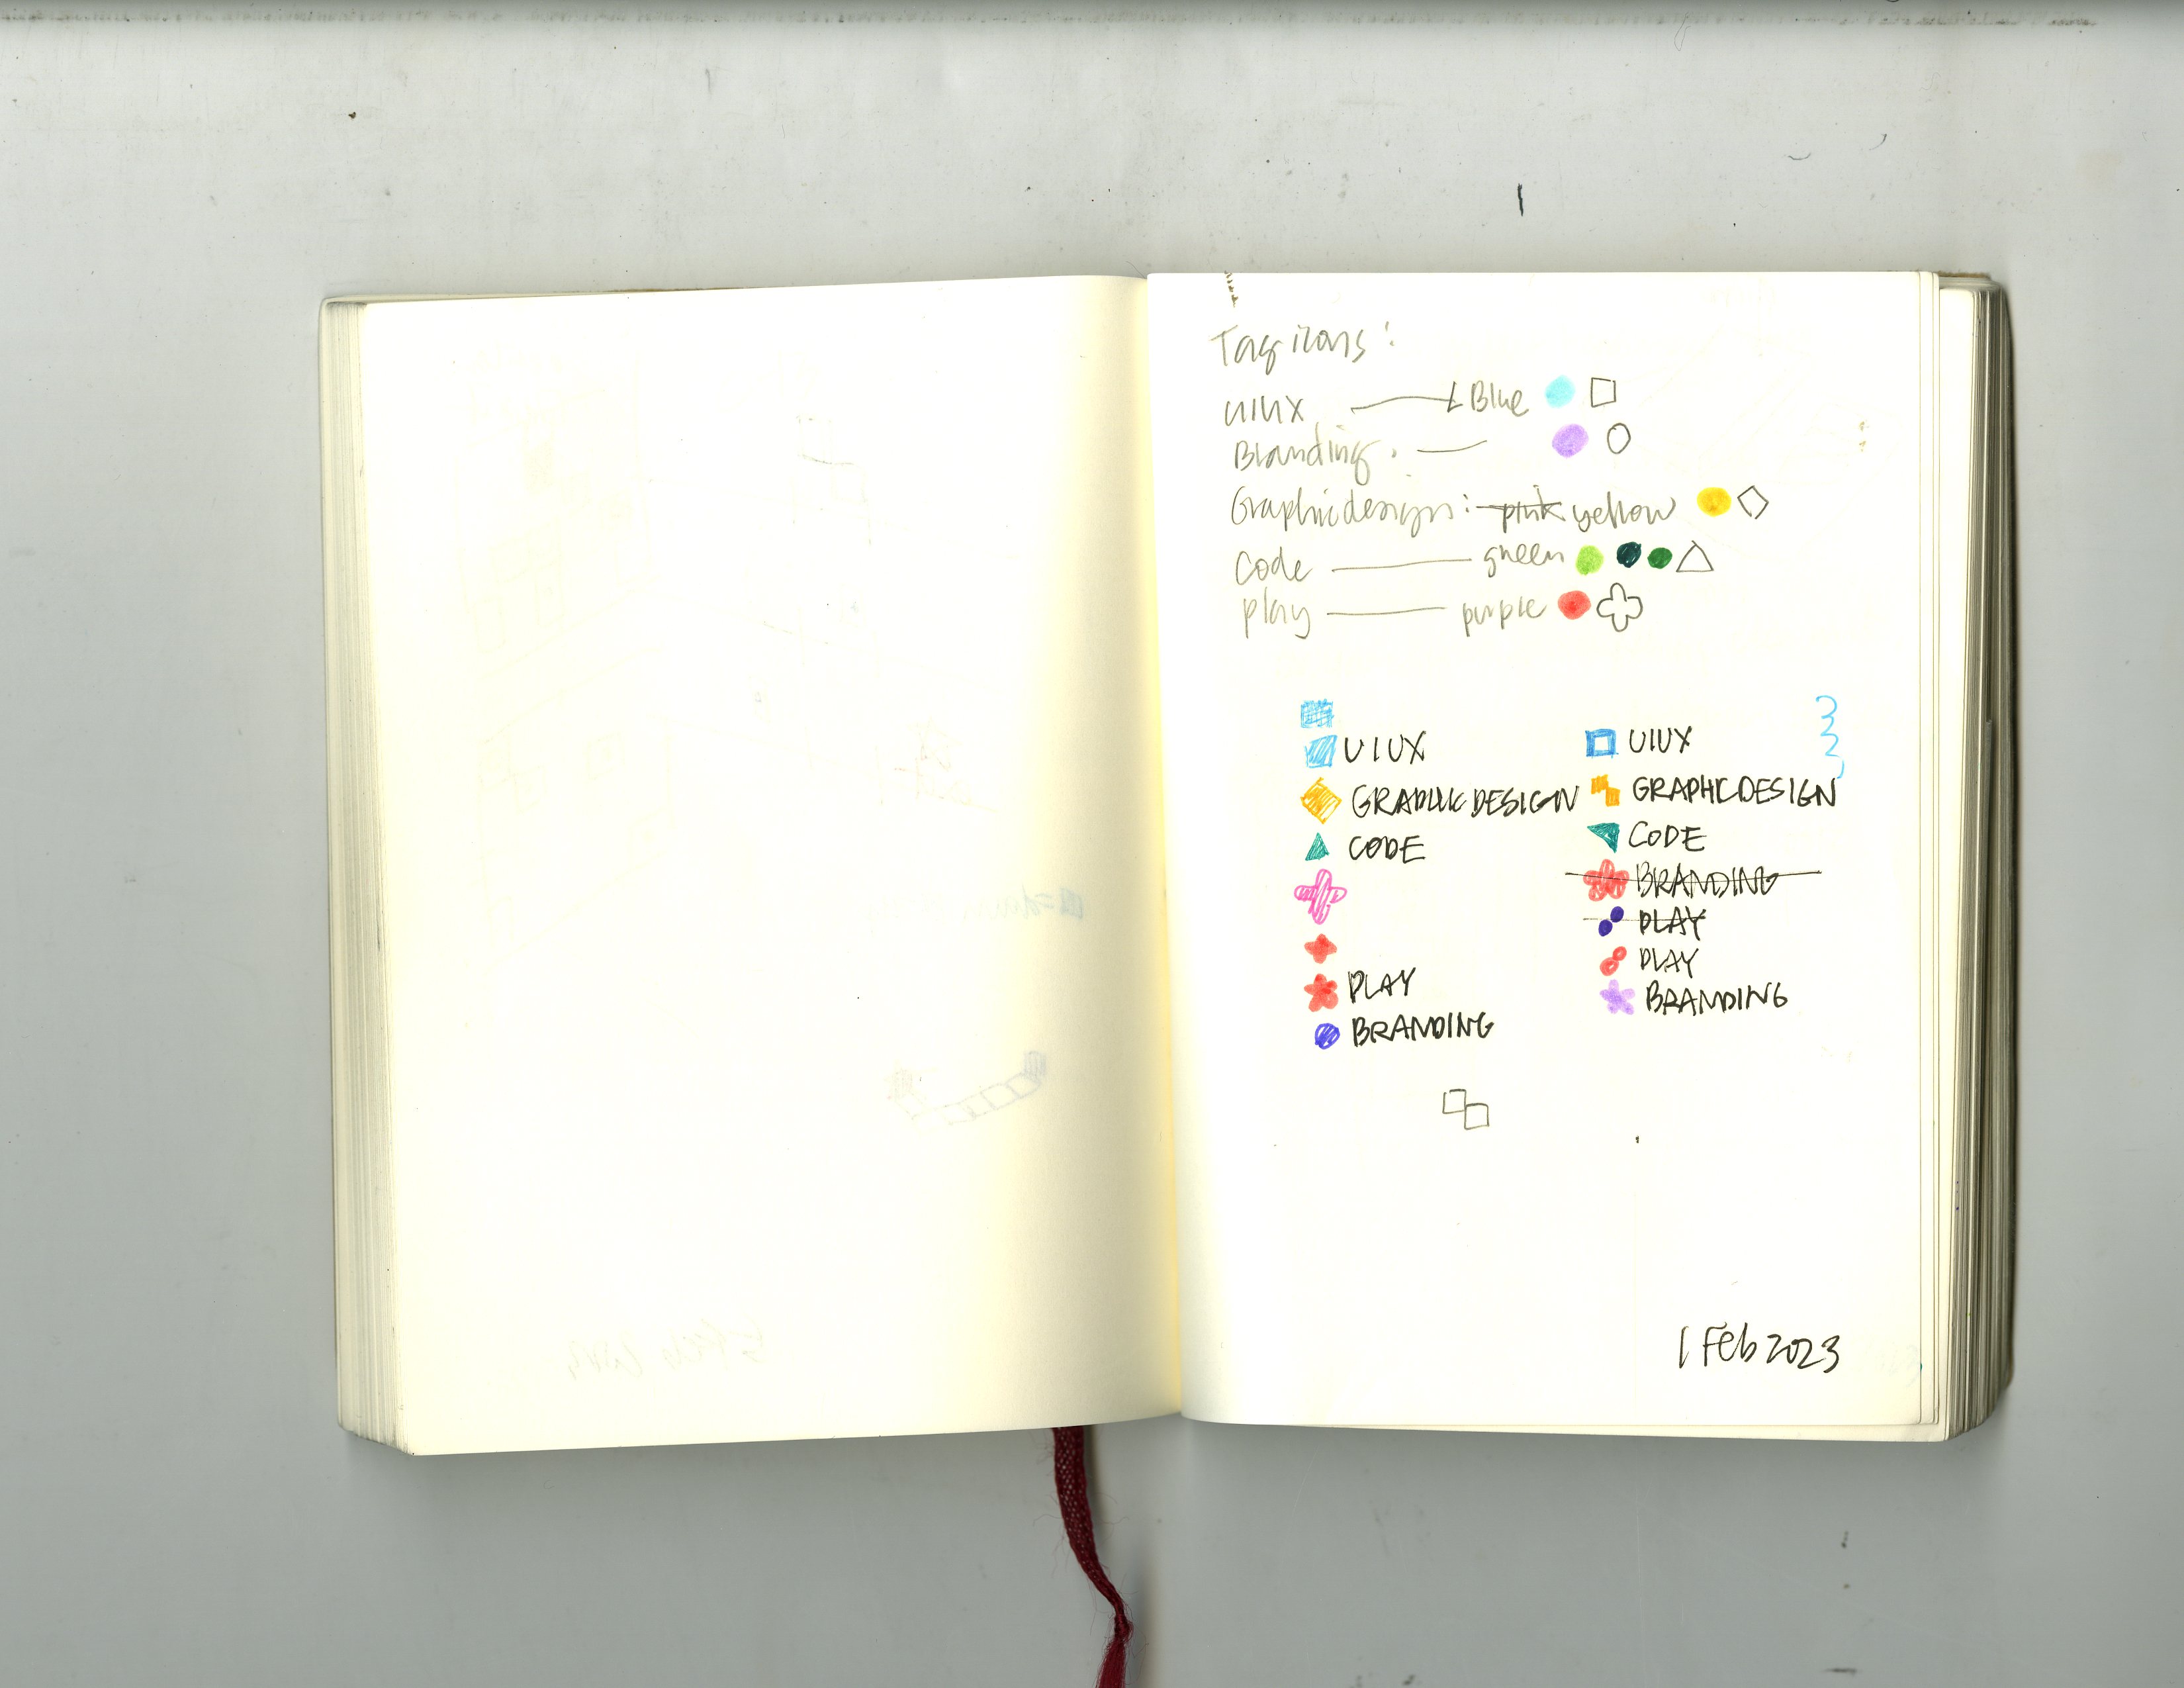 Tag icons:
UIUX Blue
Branding.
Graphic design: pink yellow
Code green
play purple
UIUX
GRAPHIC DESIGN
CODE
PLAY
BRANDING
UIUX
GRAPHIC DESIGN
CODE
BRANDING
PLAY
PLAY
BRANDING
1 Feb 2023